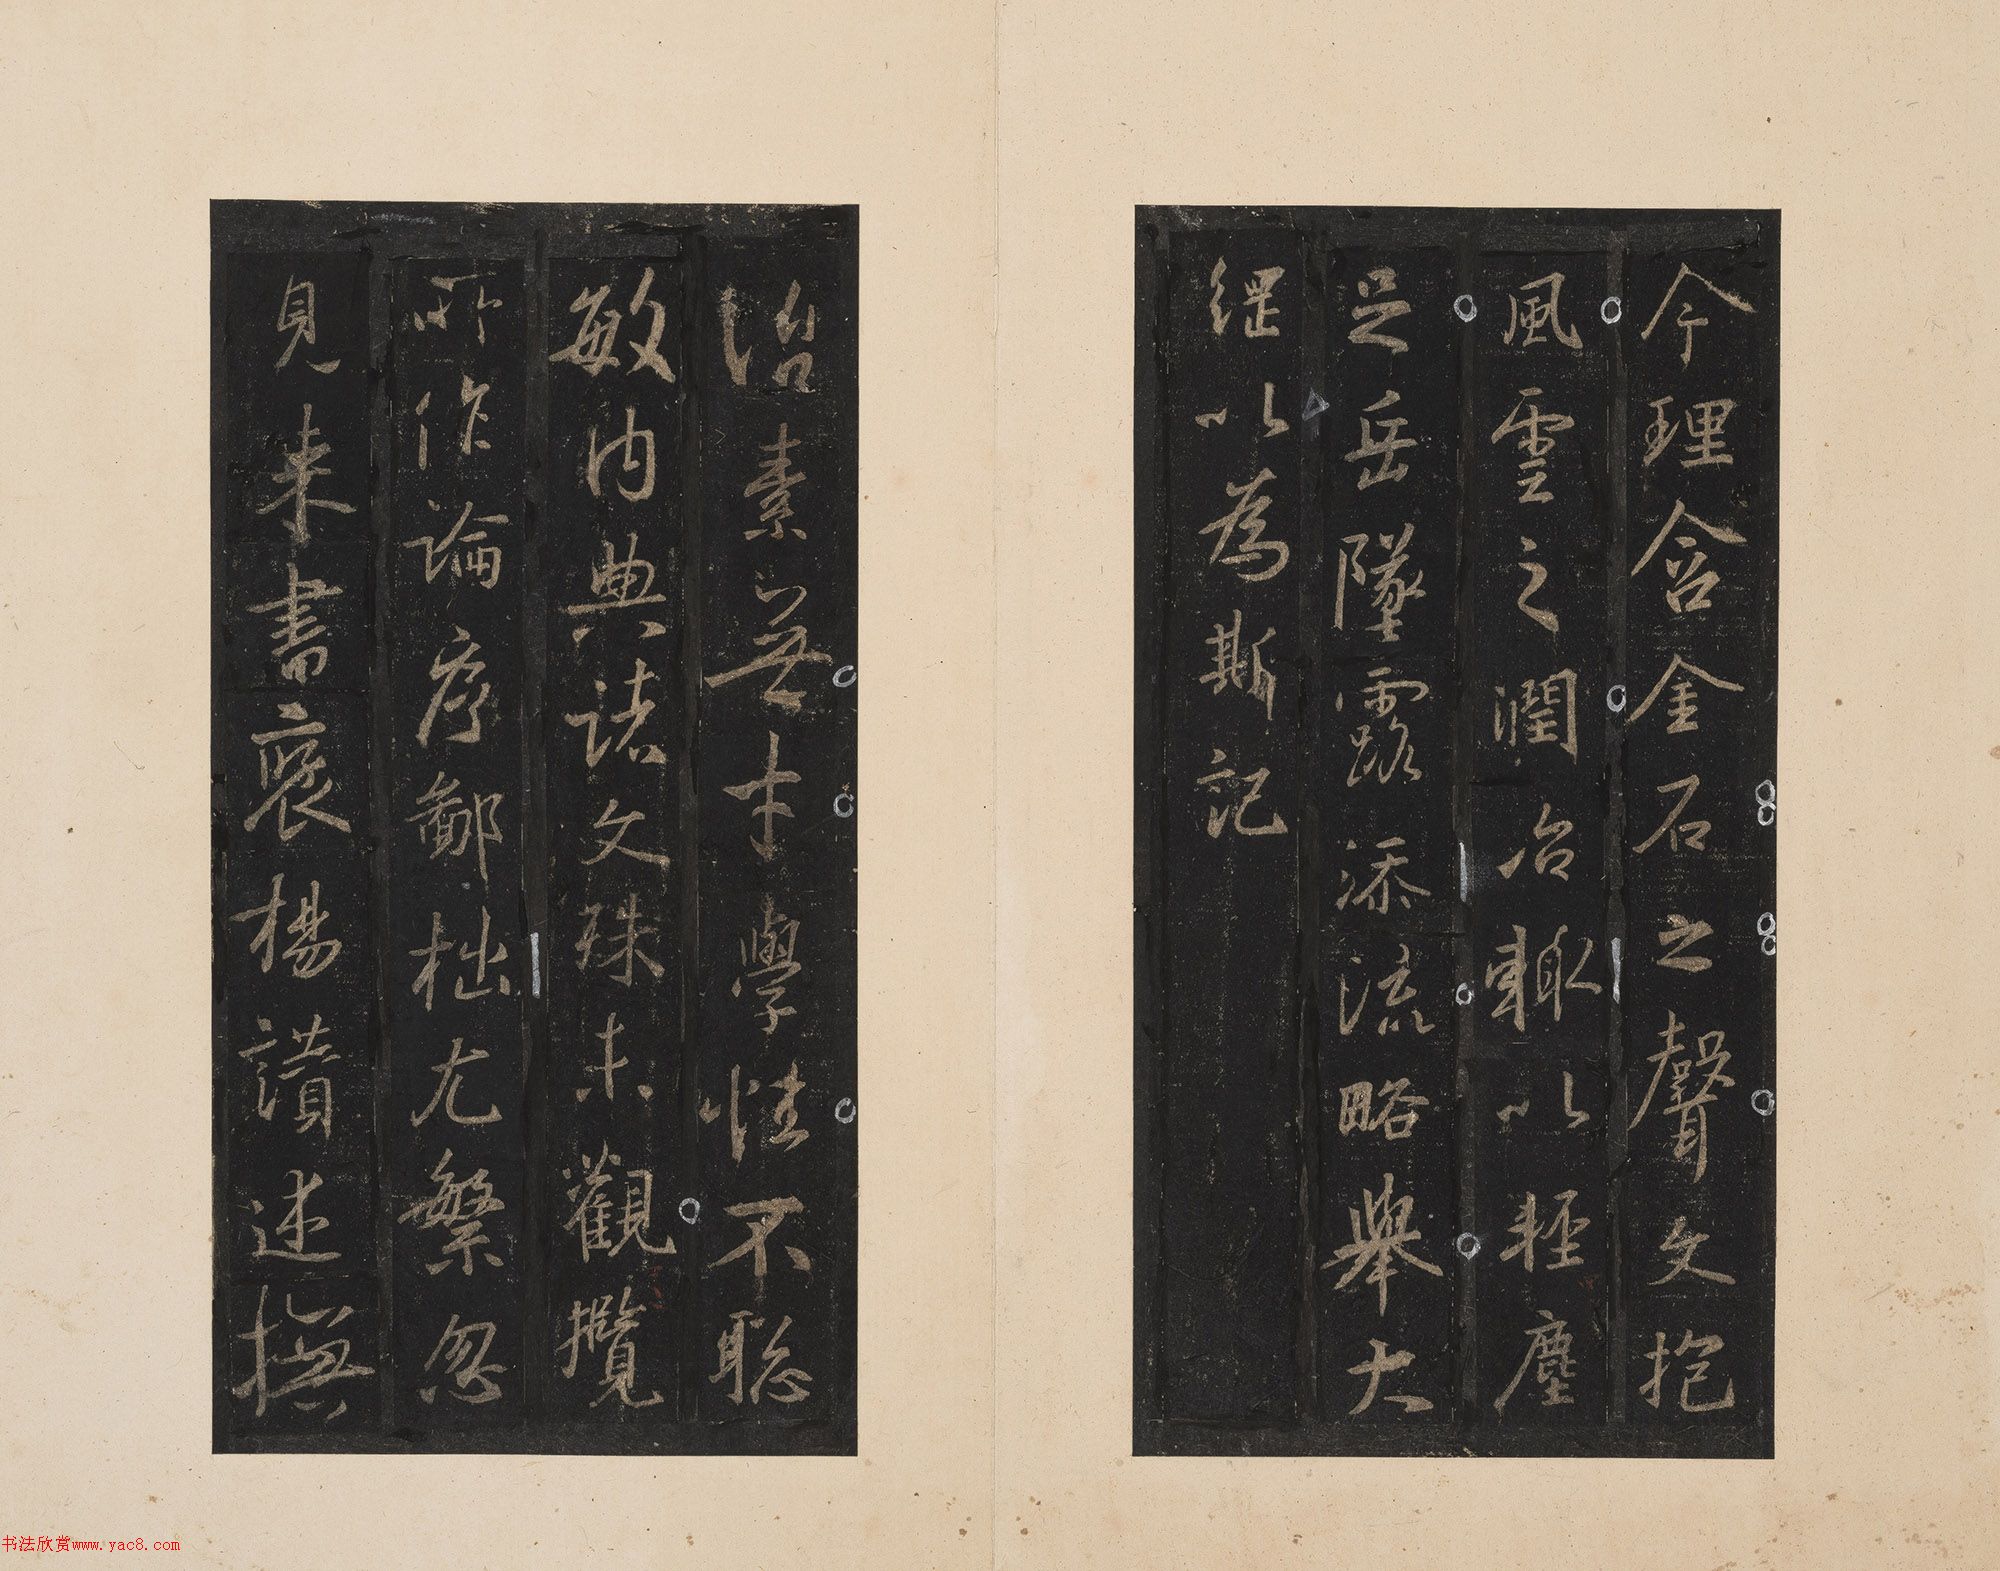 今理含金石之聲文抱
風雲之潤治輙以輕塵
足岳墜露添流略舉大
綱以為斯記
治素無才學性不聡
敏内典諸文殊未觀攬
所作論序鄙拙尤繁忽
見來書褒楊讃述撫
书法欣赏www.yac8.com